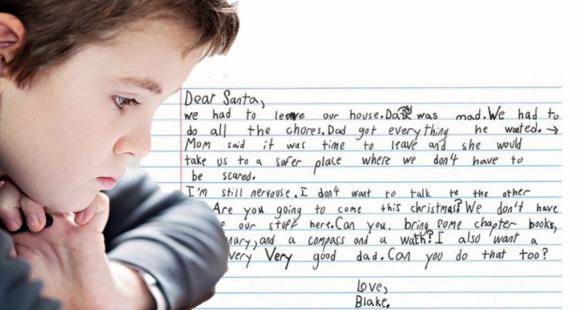 Dear Santa,
we had to leave our house. Dad was mad. We had to
do all the chores. Dad got everything he wanted. →
Mom said it was time to leave and she would
take us to a safer place where we don't have to
be scared.
I'm still nervouse. I don't want to talk to the other
Are you going to come this christmas? We don't have
our stuff here. Can you, bring some chapter books,
and a compass and a wath? I also want a
very Very good dad. Can you do that too?
Love,
Blake.